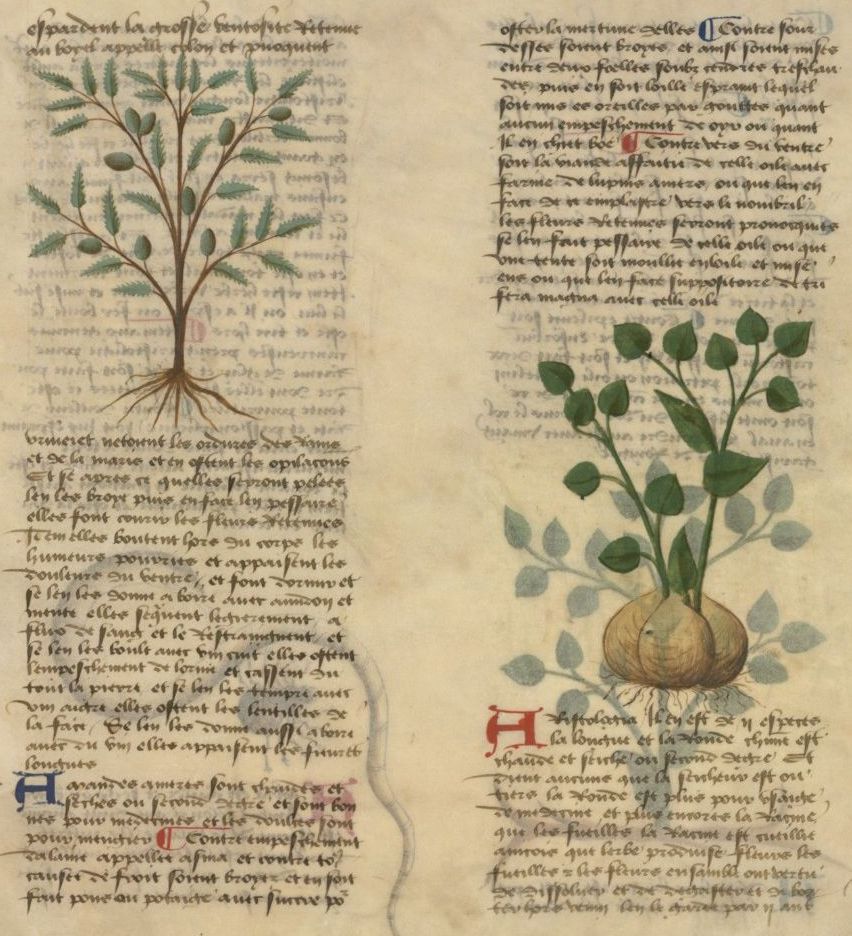 espardent la grosse ventosite Retenue
au boyel appelle colon et prouquent
urine et netoient les ordures des Rains
et de la maris et en ostent les opilacions
Et se apres ce quelles seront pelees
len les broye puis en face len pessaire
elles font courir les fleurs Retenues
Item elles boutent hors du corps les
humeurs pourries et appaisent les
douleurs du ventre, et font dormir et
se len les donne a boire avec amidon et
mente elles sequent legierement, a
flux de sang et le Restraingnent, et
se len les boult avec vin cuit elles ostent
lempeschement de lorine et cassent du
tout la pierre, et se len les tempre avec
vin aigre elles ostent les lentilles de
la face, Se len les donne aussi a boire
avec du vin elles appaisent les fievres
longues
Amandes ameres sont chaudes et
seches ou second degre et sont bon
nes pour medecines et les doulces sont
pour mengier ¶ Contre empeschement
dalaine appellee asma et contre tox
causee de froit soient broyees et en soit
fait pons ou potaige avec succre por
oster la mertume delles ¶ Contre sour
desses soient broyes et ainsi soient mises
entre deux foelles soubz cendres treschau
des puis en soit loille espraint lequel
soit mis es oreilles par goutes quant
aucun empeschement de oyr ou quant
il en chiet boe ¶ Contre vers du ventre
soit la viande affaitie de celle oile avec
farine de lupins amers, ou que len en
face de ce emplastre vers le nombril,
les fleurs Retenues seront provocquees
se len fait pessaire de celle oile ou que
une tente soit moullie en loile et mise
ens ou que len face suppositoire de tri
fera magna avec celle oile
Aristologia Il en est de ii especes
la longue et la Ronde chune est
chaude et seiche ou second degre Et
dient aucuns que la seicheur est ou
tiers la Ronde est plus pour usaige
de medecine et plus encores la Racine
que les fueilles la Racine est cueillie
aincois que lerbe produise fleurs les
fueilles et les fleurs ensamble ont vertu
de dissoldre et de degaster et de bou
ter hors venin len le garde par ii ans